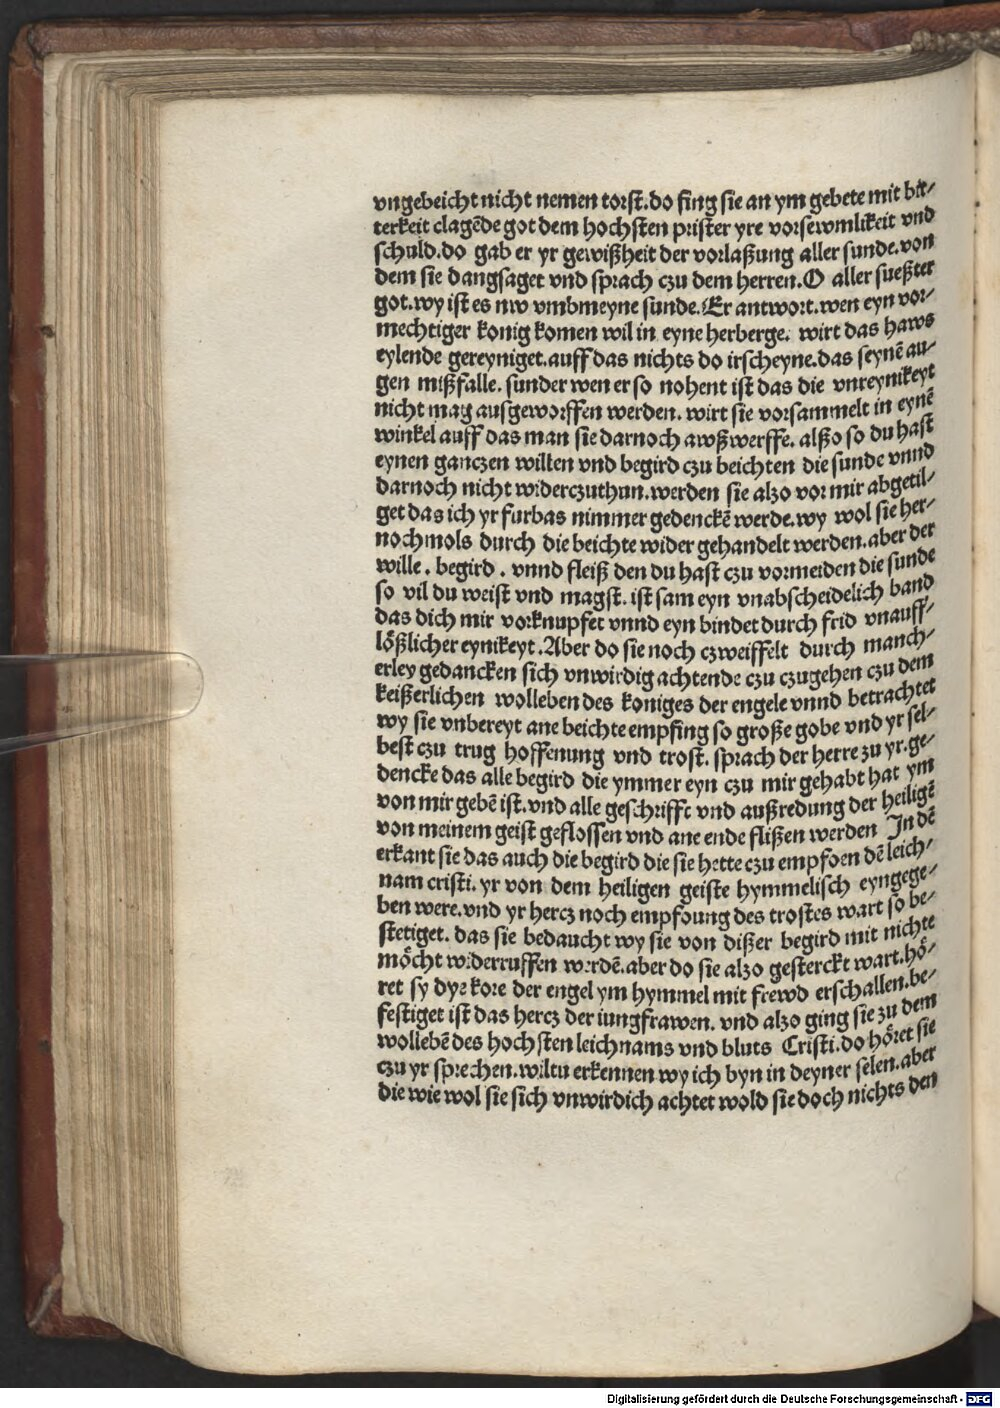 vngebeicht nicht nemen torst. do fing sie an ym gebete mit bit-
terkeit clagēde got dem hochsten prister yre vorsewmlikeit vnd
schuld. do gab er yr gewißheit der vorlaßung aller sunde. von
dem sie dangsaget vnd sprach czu dem herren. O aller sueßter
got. wy ist es nw vmbmeyne sunde. Er antwort. wen eyn vor-
mechtiger konig komen wil in eyne herberge. wirt das haws
eylende gereyniget. auff das nichts do irscheyne. das seynē au-
gen mißfalle. sunder wen er so nohent ist das die vnreynikeyt
nicht mag ausgeworffen werden. wirt sie vorsammelt in eynē
winkel auff das man sie darnoch awßwerffe. alßo so du hast
eynen ganczen willen vnd begird czu beichten die sunde vnnd
darnoch nicht widerczuthun. werden sie alzo vor mir abgetil-
get das ich yr furbas nimmer gedenckē werde. wy wol sie her-
nochmols durch die beichte wider gehandelt werden. aber der
wille. begird. vnnd fleiß den du hast czu vormeiden die sunde
so vil du weist vnd magst. ist sam eyn vnabscheidelich band
das dich mir vorknupfet vnnd eyn bindet durch frid vnauff-
lößlicher eynikeyt. Aber do sie noch czweiffelt durch manch-
erley gedancken sich vnwirdig achtende czu czugehen czu dem
keißerlichen wolleben des koniges der engele vnnd betrachtet
wy sie vnbereyt ane beichte empfing so große gobe vnd yr sel-
best czu trug hoffenung vnd trost. sprach der herre zu yr. ge-
dencke das alle begird die ymmer eyn czu mir gehabt hat ym
von mir gebē ist. vnd alle geschrifft vnd außredung der heiligē
von meinem geist geflossen vnd ane ende flißen werden In dē
erkant sie das auch die begird die sie hette czu empfoen dē leich-
nam cristi. yr von dem heiligen geiste hymmelisch eyngege-
ben were. vnd yr hercz noch empfoung des trostes wart so be-
stetiget. das sie bedaucht wy sie von dißer begird mit nichte
möcht widerruffen werdē. aber do sie alzo gesterckt wart. hö-
ret sy dye kore der engel ym hymmel mit frewd erschallen. be-
festiget ist das hercz der iungfrawen. vnd alzo ging sie zu dem
wollebē des hochsten leichnams vnd bluts Cristi. do höret sie
czu yr sprechen. wiltu erkennen wy ich byn in deyner selen. aber
die wie wol sie sich vnwirdich achtet wold sie doch nichts den
Digitalisierung gefördert durch die Deutsche Forschungsgemeinschaft - DFG